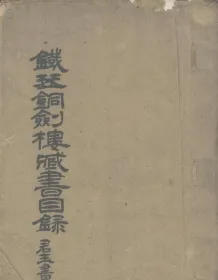 鐵琴銅劍樓臧書目録
君玉書